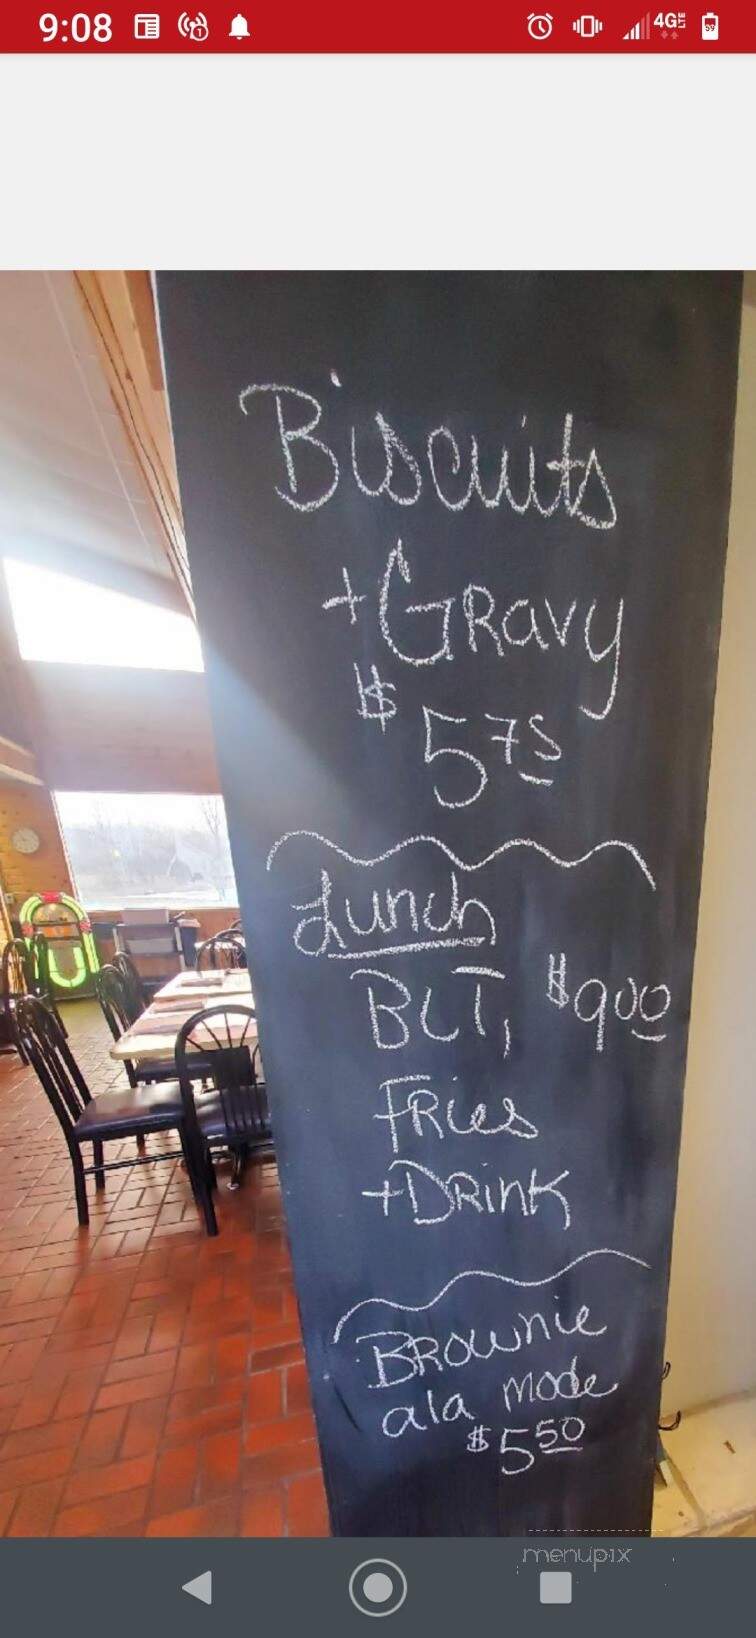 9:08
4G LTE
59
Biscuits
+ Gravy
$5 75
Lunch
BLT, $9 00
Fries
+ Drink
Brownie
ala mode
$5 50
menupix